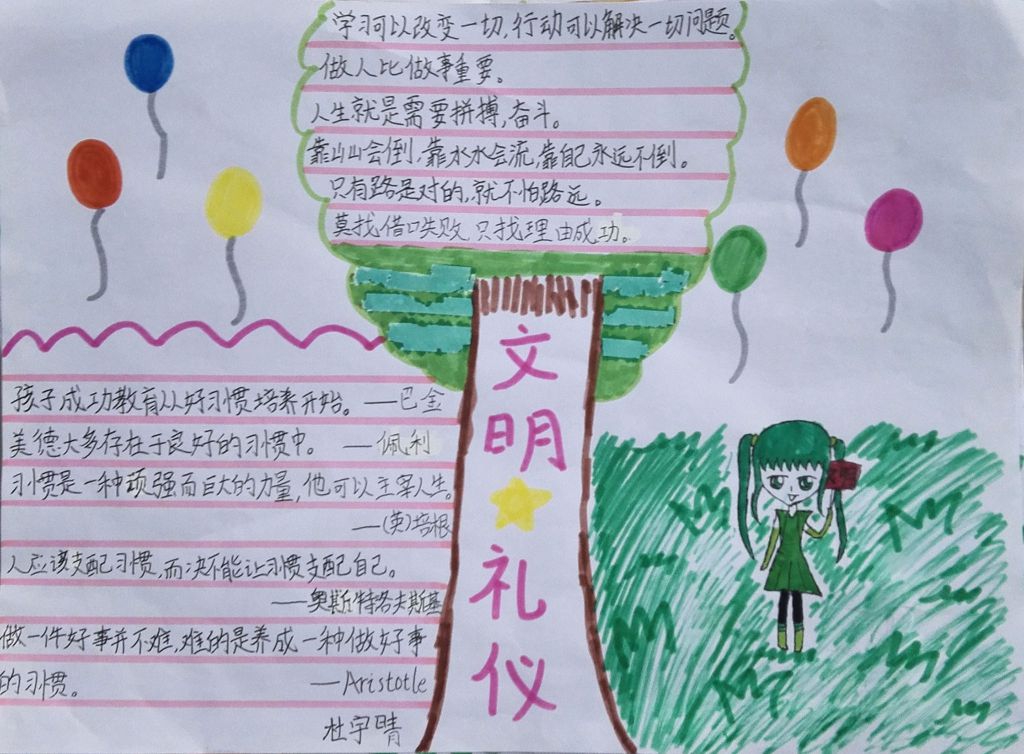 学习可以改变一切,行动可以解决一切问题。
做人比做事重要。
人生就是需要拼搏,奋斗。
靠山山会倒,靠水水会流,靠自己永远不倒。
只有路是对的,就不怕路远。
莫找借口失败,只找理由成功。
文明
礼仪
孩子成功教育从好习惯培养开始。—巴金
美德大多存在于良好的习惯中。—佩利
习惯是一种顽强而巨大的力量,他可以主宰人生。
—(英)培根
人应该支配习惯,而决不能让习惯支配自己。
—奥斯特洛夫斯基
做一件好事并不难,难的是养成一种做好事
的习惯。—Aristotle
杜宇晴